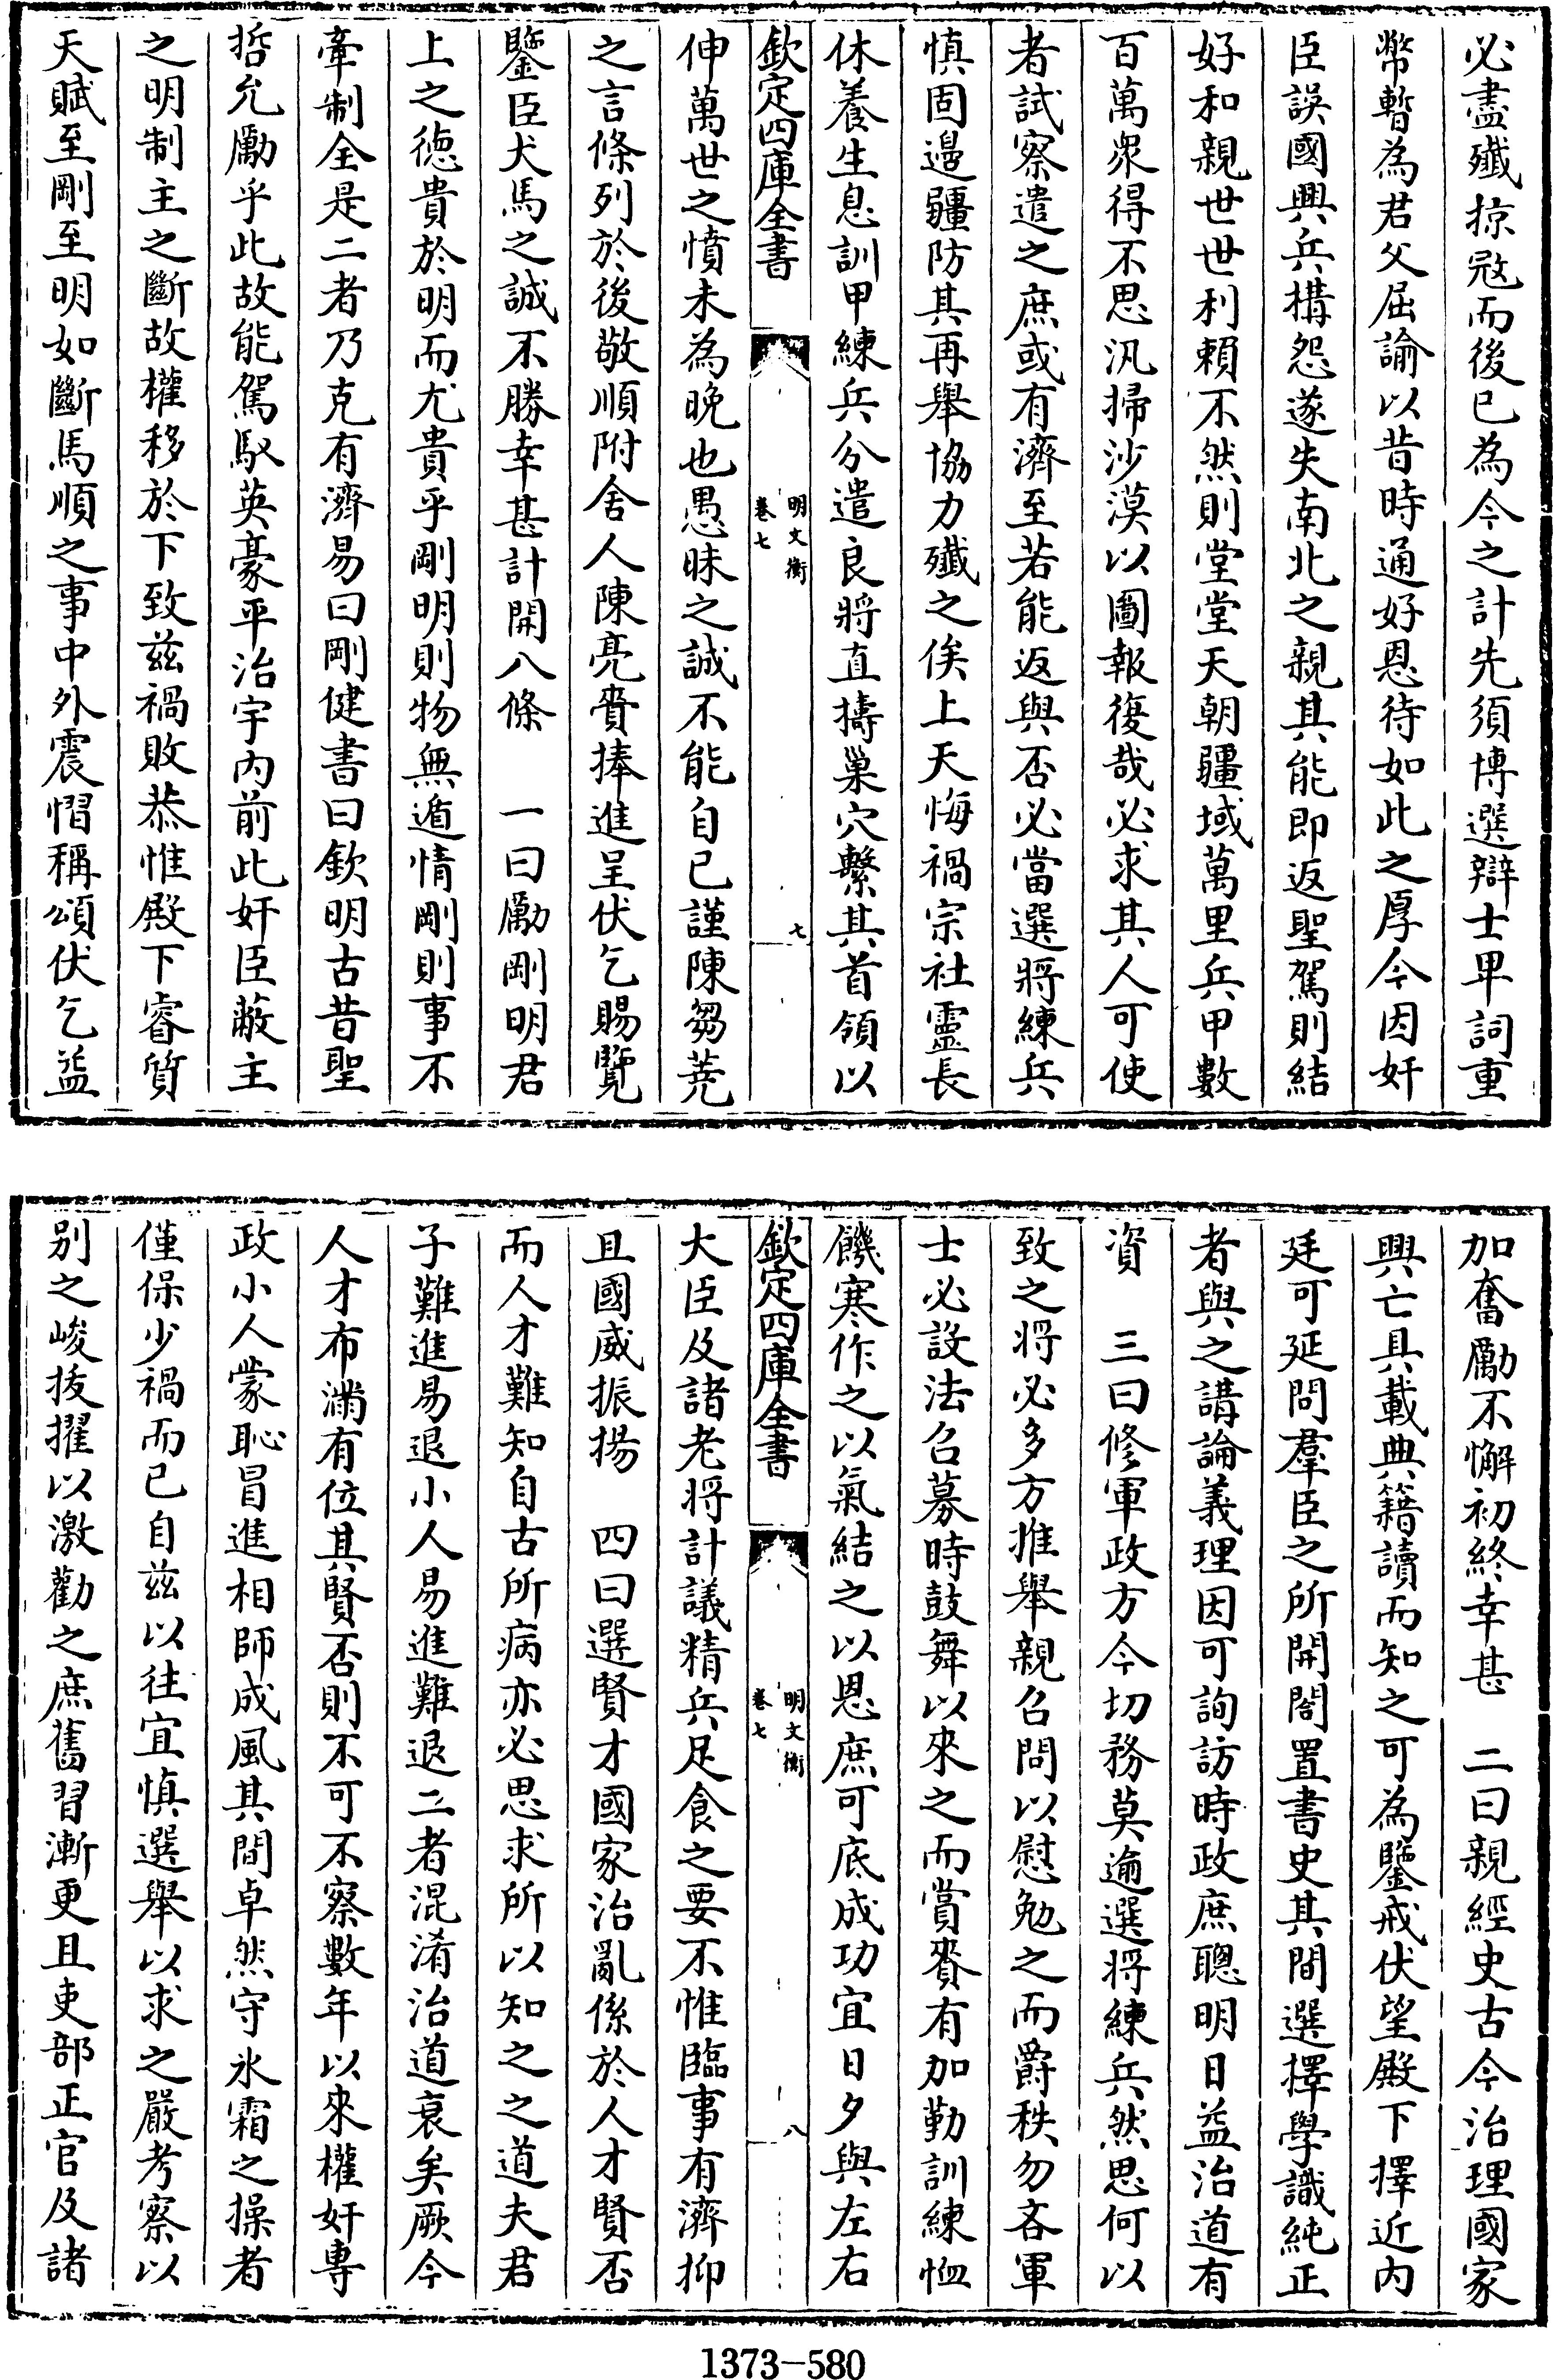 必盡殲掠𡨥而後已為今之計先須博選辯士卑詞重
幣暫為君父屈諭以昔時通好恩待如此之厚今因奸
臣誤國興兵搆怨遂失南北之親其能即返聖駕則結
好和親世世利賴不然則堂堂天朝疆域萬里兵甲數
百萬衆得不思汎掃沙漠以圖報復哉必求其人可使
者試察遣之庶或有濟至若能返與否必當選將練兵
慎固邊疆防其再舉協力殲之俟上天悔禍宗社靈長
休養生息訓甲練兵分遣良將直擣巢穴繫其首領以
欽定四庫全書
明文衡
卷七
七
伸萬世之憤未為晚也愚昧之誠不能自已謹陳芻蕘
之言條列於後敬順附舍人陳亮賫捧進呈伏乞賜覽
鑒臣犬馬之誠不勝幸甚計開八條　一曰勵剛明君
上之徳貴於明而尤貴乎剛明則物無遁情剛則事不
牽制全是二者乃克有濟易曰剛健書曰欽明古昔聖
哲允勵乎此故能駕馭英豪平治宇内前此奸臣蔽主
之明制主之斷故權移於下致兹禍敗恭惟殿下睿質
天賦至剛至明如斷馬順之事中外震慴稱頌伏乞益
加奮勵不懈初終幸甚　二曰親經史古今治理國家
興亡具載典籍讀而知之可為鑒戒伏望殿下擇近内
廷可延問羣臣之所開閣置書史其間選擇學識純正
者與之講論義理因可詢訪時政庶聰明日益治道有
資　三曰修軍政方今切務莫逾選將練兵然思何以
致之將必多方推舉親召問以慰勉之而爵秩勿吝軍
士必設法召募時鼓舞以來之而賞賚有加勤訓練恤
饑寒作之以氣結之以恩庶可底成功宜日夕與左右
欽定四庫全書
明文衡
卷七
八
大臣及諸老將計議精兵足食之要不惟臨事有濟抑
且國威振揚　四曰選賢才國家治亂係於人才賢否
而人才難知自古所病亦必思求所以知之之道夫君
子難進易退小人易進難退二者混淆治道衰矣厥今
人才布滿有位其賢否則不可不察數年以來權奸專
政小人蒙恥冒進相師成風其間卓然守氷霜之操者
僅保少禍而已自兹以往宜慎選舉以求之嚴考察以
别之峻拔擢以激勸之庶舊習漸更且吏部正官及諸
1373-580